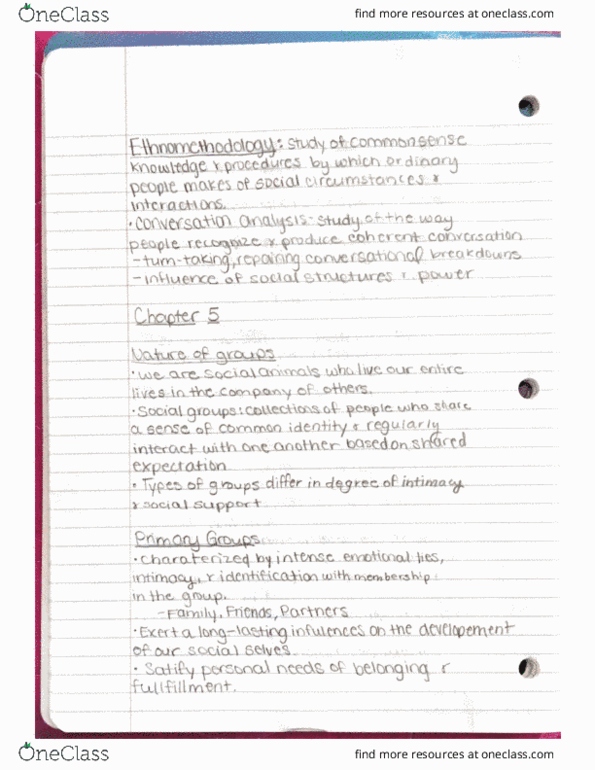 OneClass
find more resources at oneclass.com
Ethnomethodology: study of common sense
knowledge & procedures by which ordinary
people makes of social circumstances &
interactions.
• conversation analysis- study of the way
people recognize & produce coherent conversation
- turn-taking, repairing conversational breakdowns
- influence of social structures & power
Chapter 5
Nature of groups
• we are social animals who live our entire
lives in the company of others.
• Social groups: collections of people who share
a sense of common identity & regularly
interact with one another based on shared
expectation
• Types of groups differ in degree of intimacy
& social support
Primary Groups
• Charaterized by intense emotional ties,
intimacy, & identification with membership
in the group.
- Family, Friends, Partners
• Exert a long-lasting infulences on the developement
of our social selves.
• Satify personal needs of belonging &
fullfillment.
OneClass
find more resources at oneclass.com